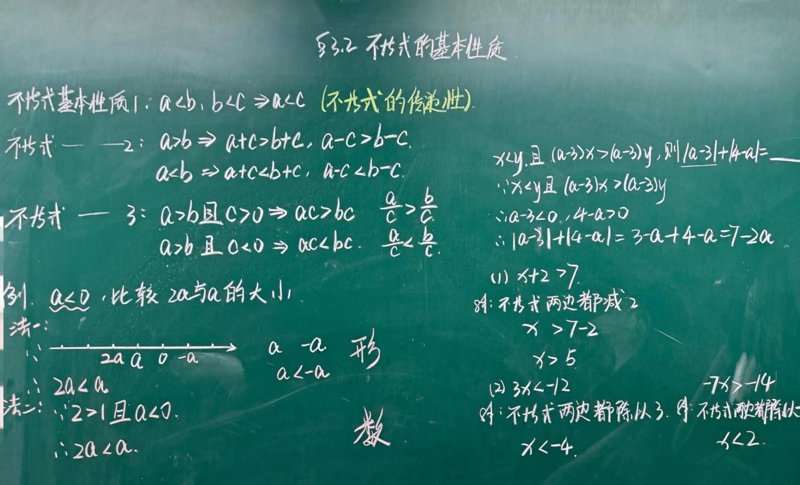 §3.2 不等式的基本性质
不等式基本性质1: a<b, b<c ⇒ a<c (不等式的传递性)
不等式 — —2: a>b ⇒ a+c>b+c, a-c>b-c.
a<b ⇒ a+c<b+c, a-c<b-c.
不等式 — 3: a>b且c>0 ⇒ ac>bc a/c > b/c
a>b且c<0 ⇒ ac<bc. a/c < b/c.
例. a<0, 比较2a与a的大小
法一:
∴ 2a a 0 -a
∴ 2a<a
a -a 形
a<-a
法二: ∵2>1且a<0.
∴2a<a.
数
x<y,且(a-3)x>(a-3)y,则|a-3|+|4-a|=___
∵x<y且(a-3)x>(a-3)y
∴a-3<0, 4-a>0
∴|a-3|+|4-a|=3-a+4-a=7-2a
(1) x+2>7
解:不等式两边都减2
x>7-2
x>5
(2) 3x<-12
解:不等式两边都除以3.
x<-4.
-7x>-14
解:不等式两边都除以
x<2.